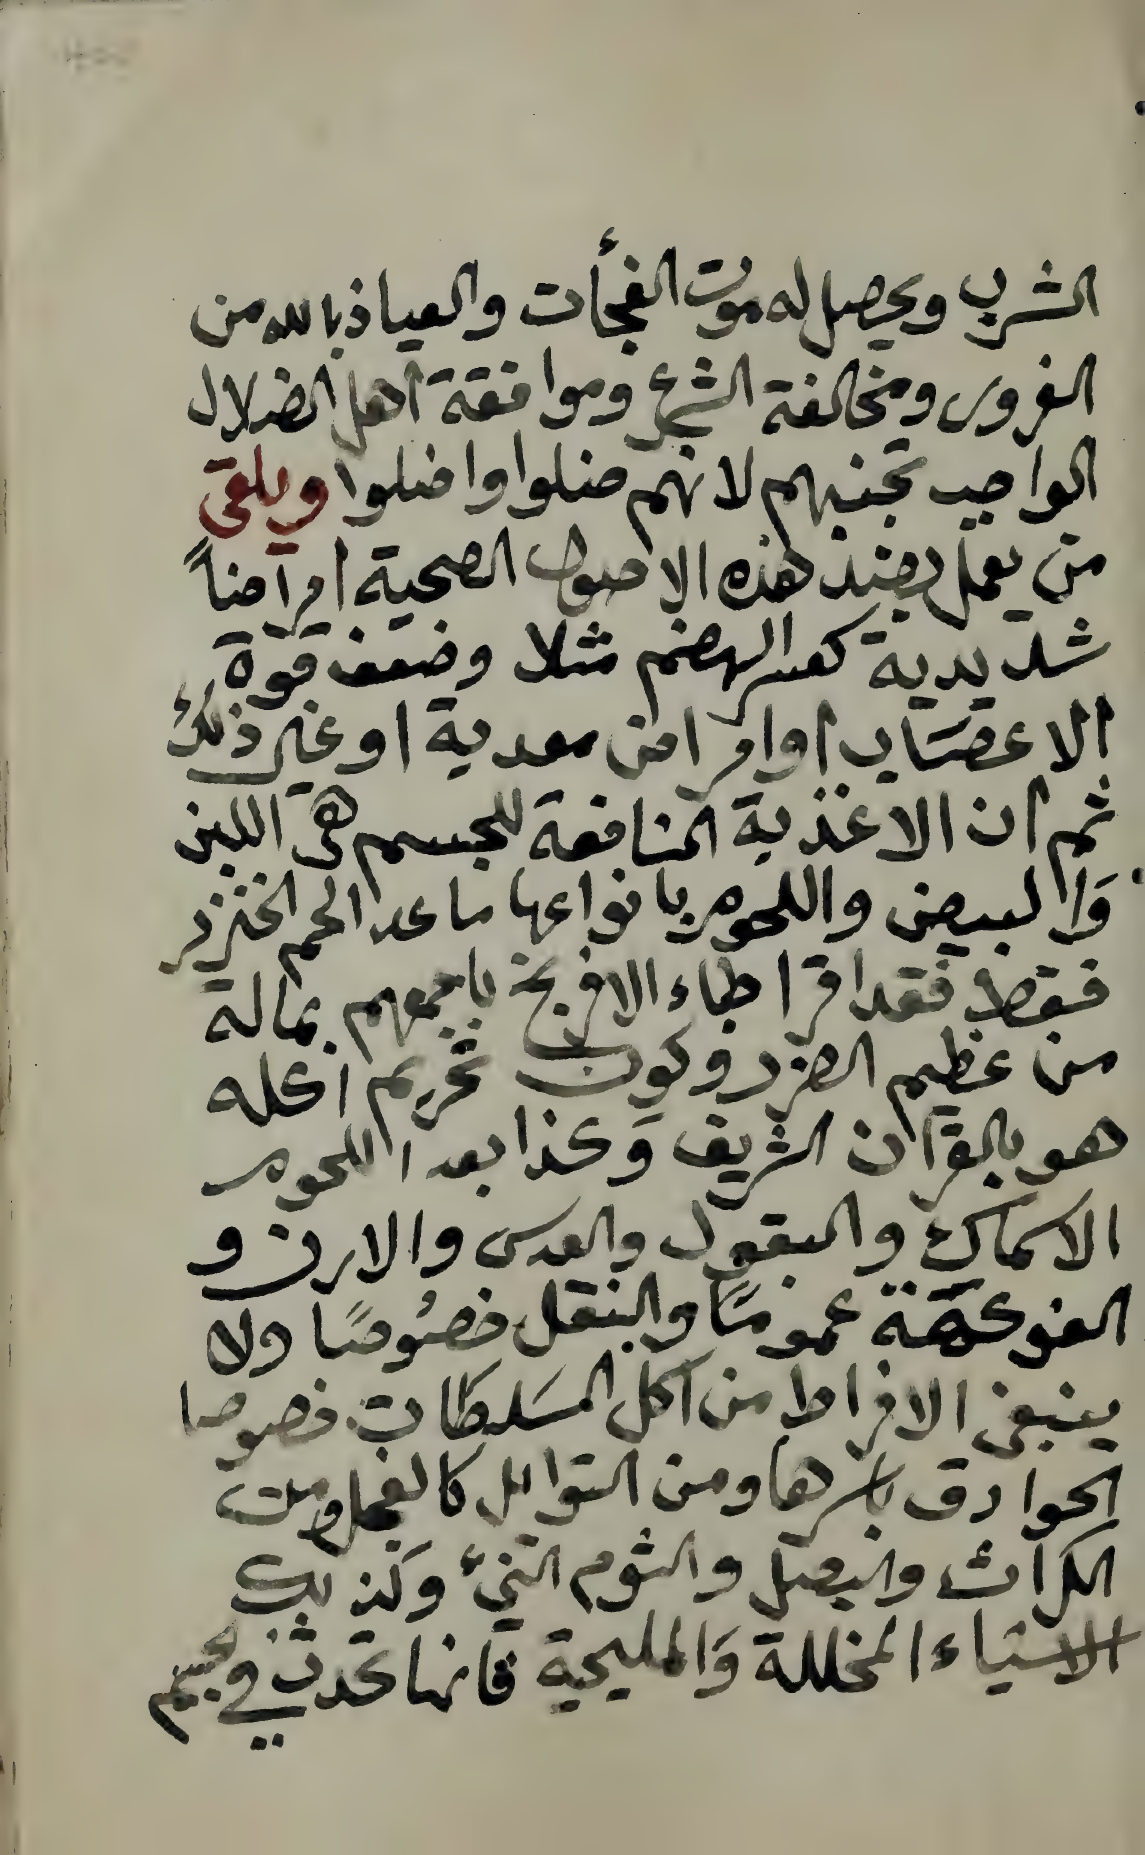 الشرب ويحصل له موت الفجأت والعياذ بالله من
الغرور ومخالفة الشرع وموافقة اهل الضلال
الواجب تجنبهم لانهم ضلوا واضلوا ويلقى
من يعمل بضد هذه الاصول الصحية امراضاً
شديدية كعسر الهضم مثلا وضعف قوة
الاعصاب او امراض معدية او غير ذلك
ثم ان الاغذية النافعة للجسم هى اللبن
وَالبيض واللحوم بانواعها ماعدا لحم الخنزير
فقط فقد اقر اطباء الافرنج باجمعهم بماله
من عظيم الضرر وكون تحريم اكله
هو بالقرآن الشريف وَكذا بعد اللحوم
الاسماك والبقول والعدس والارز و
الفوكهة عموماً والبقل خصُوصًا ولا
ينبغى الافراط من اكل السَلطات خصوصا
الحوادق باسرها ومن التوابل كالفجل ومن
الكراث والبصل والثوم النيء وَكذلك
الاشياء المخللة وَالمليحية فانها تحدث في لجسم